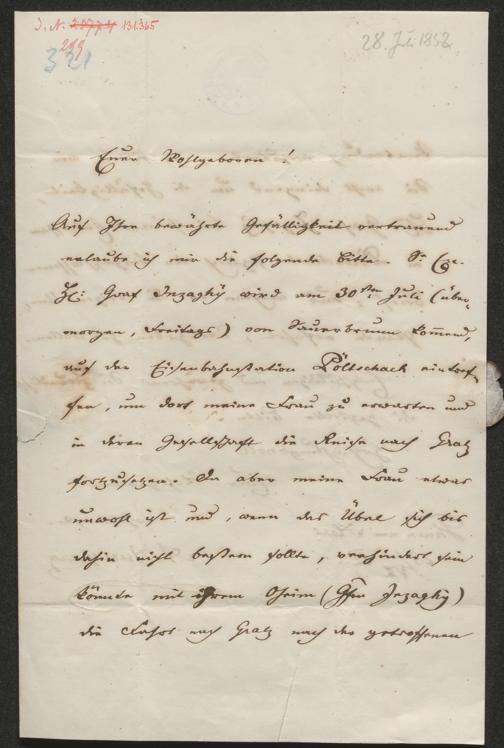 J. N. 28774 131.365
299
321
28. Juli 1852
Euer Wohlgeboren!
Auf Ihre bewährte Gefälligkeit vertrauend
erlaube ich mir die folgende Bitte. Sr Exz.
H: Graf Inzaghÿ wird am 30ten Juli (über-
morgen, Freitags) von Sauerbrunn komend,
auf der Eisenbahnstation Pöltschach eintref-
fen, um dort meine Frau zu erwarten und
in deren Gesellschaft die Reise nach Gratz
fortzusetzen. Da aber meine Frau etwas
unwohl ist und, wenn das Übel sich bis
dahin nicht beßern sollte, verhindert sein
könnte mit ihrem Oheim (Gfen Inzaghÿ)
die Fahrt nach Gratz nach der getroffenen